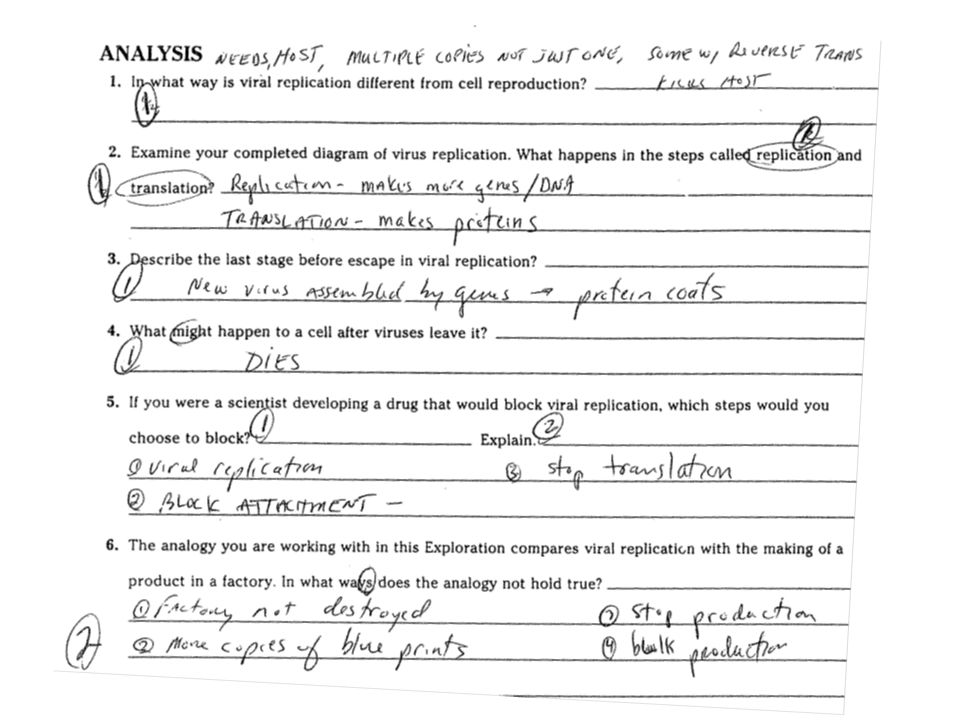 ANALYSIS NEEDS, HOST, MULTIPLE COPIES NOT JUST ONE, Some w/ REVERSE TRANS
1. In what way is viral replication different from cell reproduction? KILLS HOST
1
2. Examine your completed diagram of virus replication. What happens in the steps called replication and
1 translation? Replication - makes more genes/DNA
TRANSLATION - makes proteins
3. Describe the last stage before escape in viral replication?
1 New virus assembled by genes → protein coats
4. What might happen to a cell after viruses leave it?
1 DIES
5. If you were a scientist developing a drug that would block viral replication, which steps would you
choose to block? 1 Explain. 2
① viral replication ③ stop translation
② BLOCK ATTACHMENT -
6. The analogy you are working with in this Exploration compares viral replication with the making of a
product in a factory. In what ways does the analogy not hold true?
① Factory not destroyed stop production
2 ② More copies of blue prints ④ production